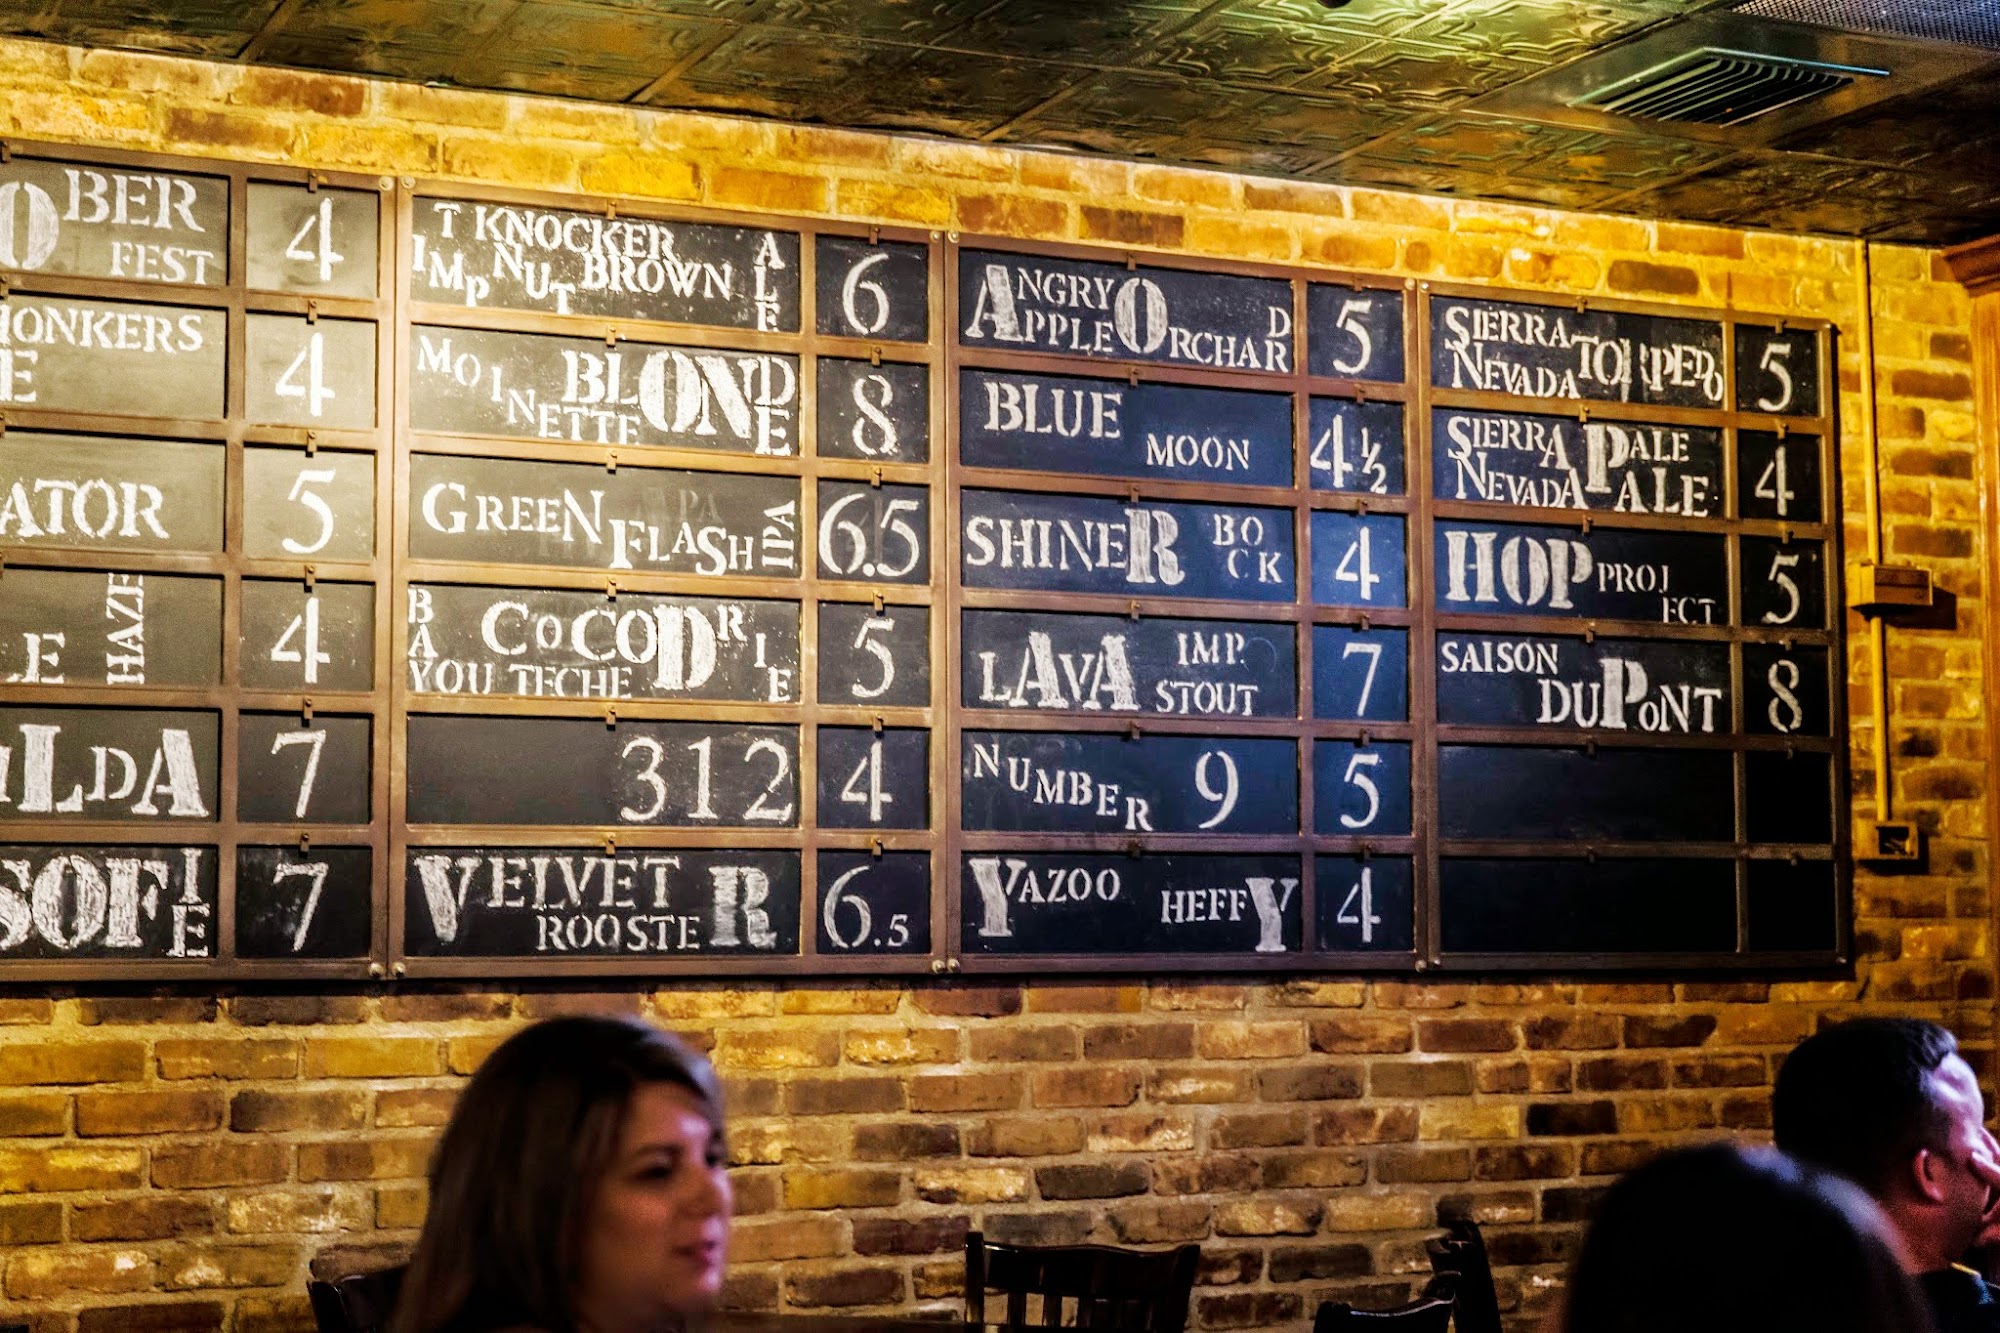 OBER
FEST 4
HONKERS
E 4
ATOR 5
LE HAZE 4
ILDA 7
SOFIE 7
T KNOCKER
IMP NUT BROWN ALE 6
MOINETTE BLONDE 8
GREEN FLASH IIPA 6.5
BAYOU TECHE COCODRIE 5
312 4
VELVET
ROOSTER 6.5
ANGRY
APPLE ORCHARD 5
BLUE
MOON 4½
SHINER BOCK 4
LAVA IMP.
STOUT 7
NUMBER 9 5
YAZOO HEFFY 4
SIERRA
NEVADA TORPEDO 5
SIERRA PALE
NEVADA PALE 4
HOP PROJECT 5
SAISON
DUPONT 8